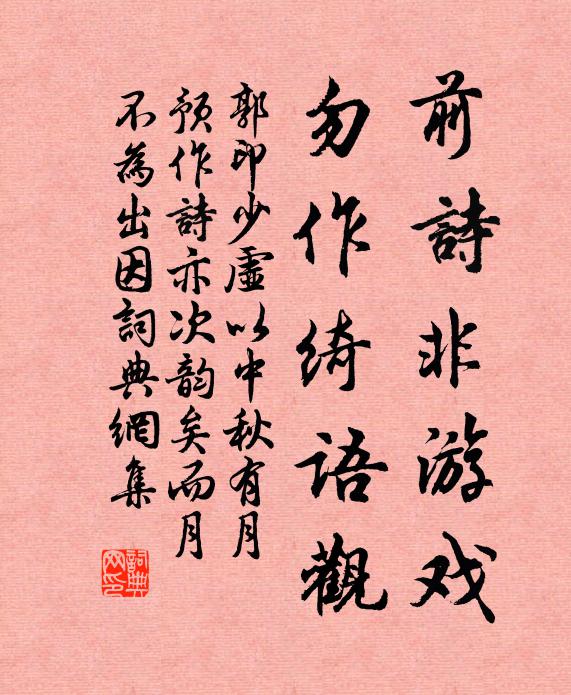 前詩非游戏
勿作绮語觀
郭印少虛以中秋有月
預作詩亦次韵矣而月
不為出因詞典網集
詞典網印